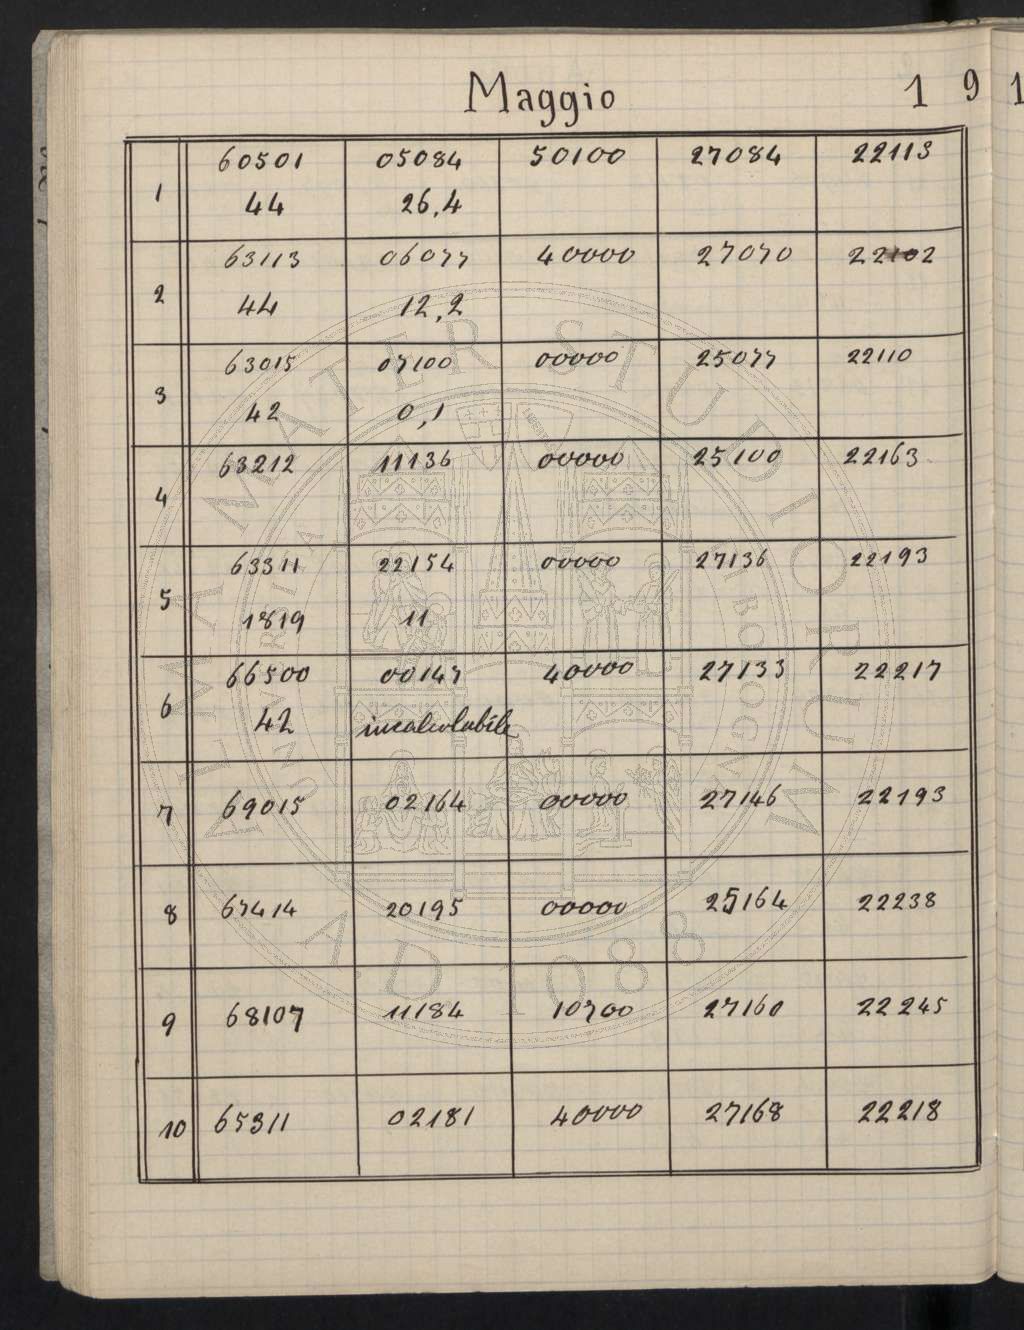 Maggio 1 9 1
1 60501 05084 50100 27084 22113
44 26,4
2 63113 06077 40000 27070 22102
44 12,2
3 63015 07100 00000 25077 22110
42 0,1
4 63212 11136 00000 25100 22163
5 63311 22154 00000 27136 22193
1819 11
6 66500 00147 40000 27133 22217
42 incalcolabile
7 69015 02164 00000 27146 22193
8 67414 20195 00000 25164 22238
9 68107 11184 10700 27160 22245
10 65311 02181 40000 27168 22218
ALMA MATER STUDIORUM
A.D. 1088